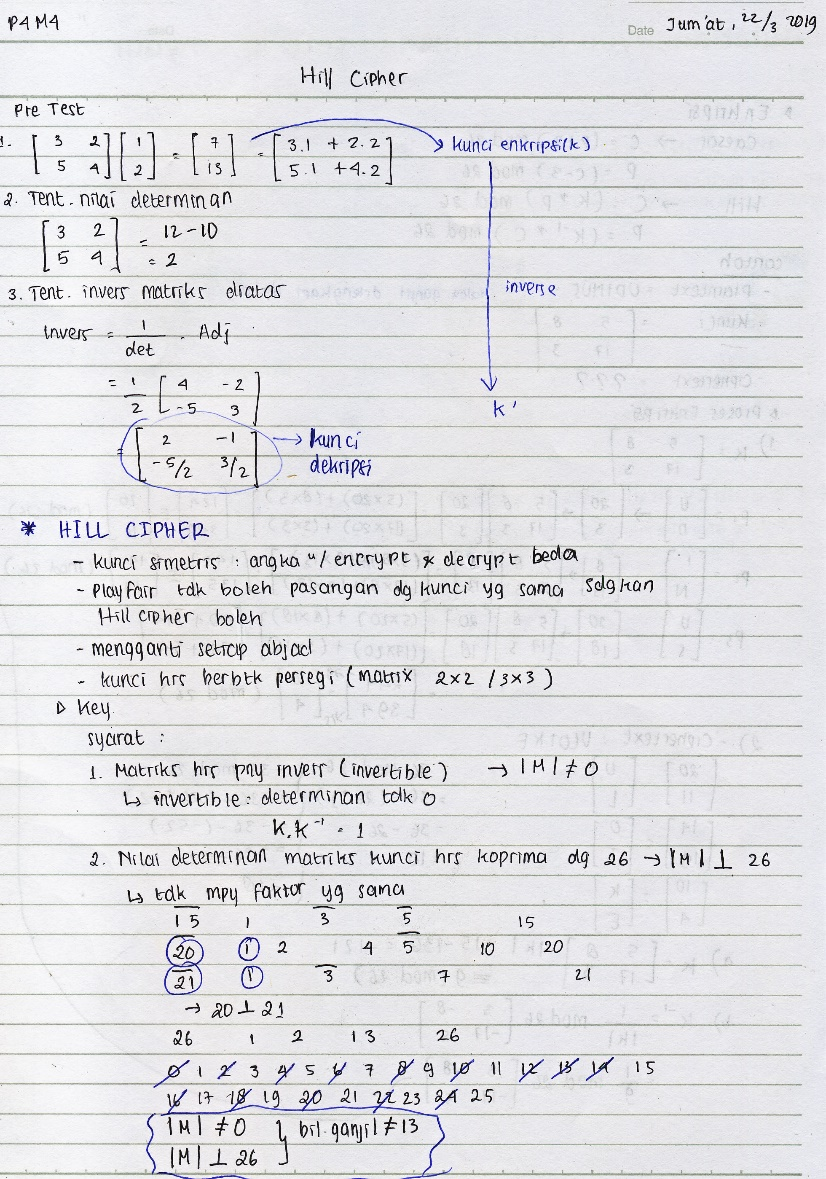 P4 M4
Date Jum'at, 22/3 2019
Hill Cipher
Pre Test
1. [3 2 5 4] [1 2] = [7 13] = [3.1 + 2.2 5.1 + 4.2] → kunci enkripsi(k)
2. Tent. nilai determinan
[3 2 5 4] = 12-10
= 2
3. Tent. invers matriks diatas
inverse
Invers = 1/det . Adj
= 1/2 [4 -2 -5 3]
k'
= [2 -1 -5/2 3/2] → kunci
dekripsi
* HILL CIPHER
- kunci simetris : angka u/ encrypt & decrypt beda
- Playfair tdk boleh pasangan dg kunci yg sama sdgkan
Hill cipher boleh
- mengganti setiap abjad
- kunci hrs berbtk persegi (matrix 2x2 / 3x3)
▷ Key
syarat :
1. Matriks hrs pny invers (invertible) → |M| ≠ 0
↳ invertible : determinan tdk 0
K.K⁻¹ = 1
2. Nilai determinan matriks kunci hrs koprima dg 26 → |M| ⊥ 26
↳ tdk mpy faktor yg sama
15 1 3 5 15
20 1 2 4 5 10 20
21 1 3 7 21
→ 20 ⊥ 21
26 1 2 13 26
0 1 2 3 4 5 6 7 8 9 10 11 12 13 14 15
16 17 18 19 20 21 22 23 24 25
|M| ≠ 0 } bil. ganjil ≠ 13
|M| ⊥ 26